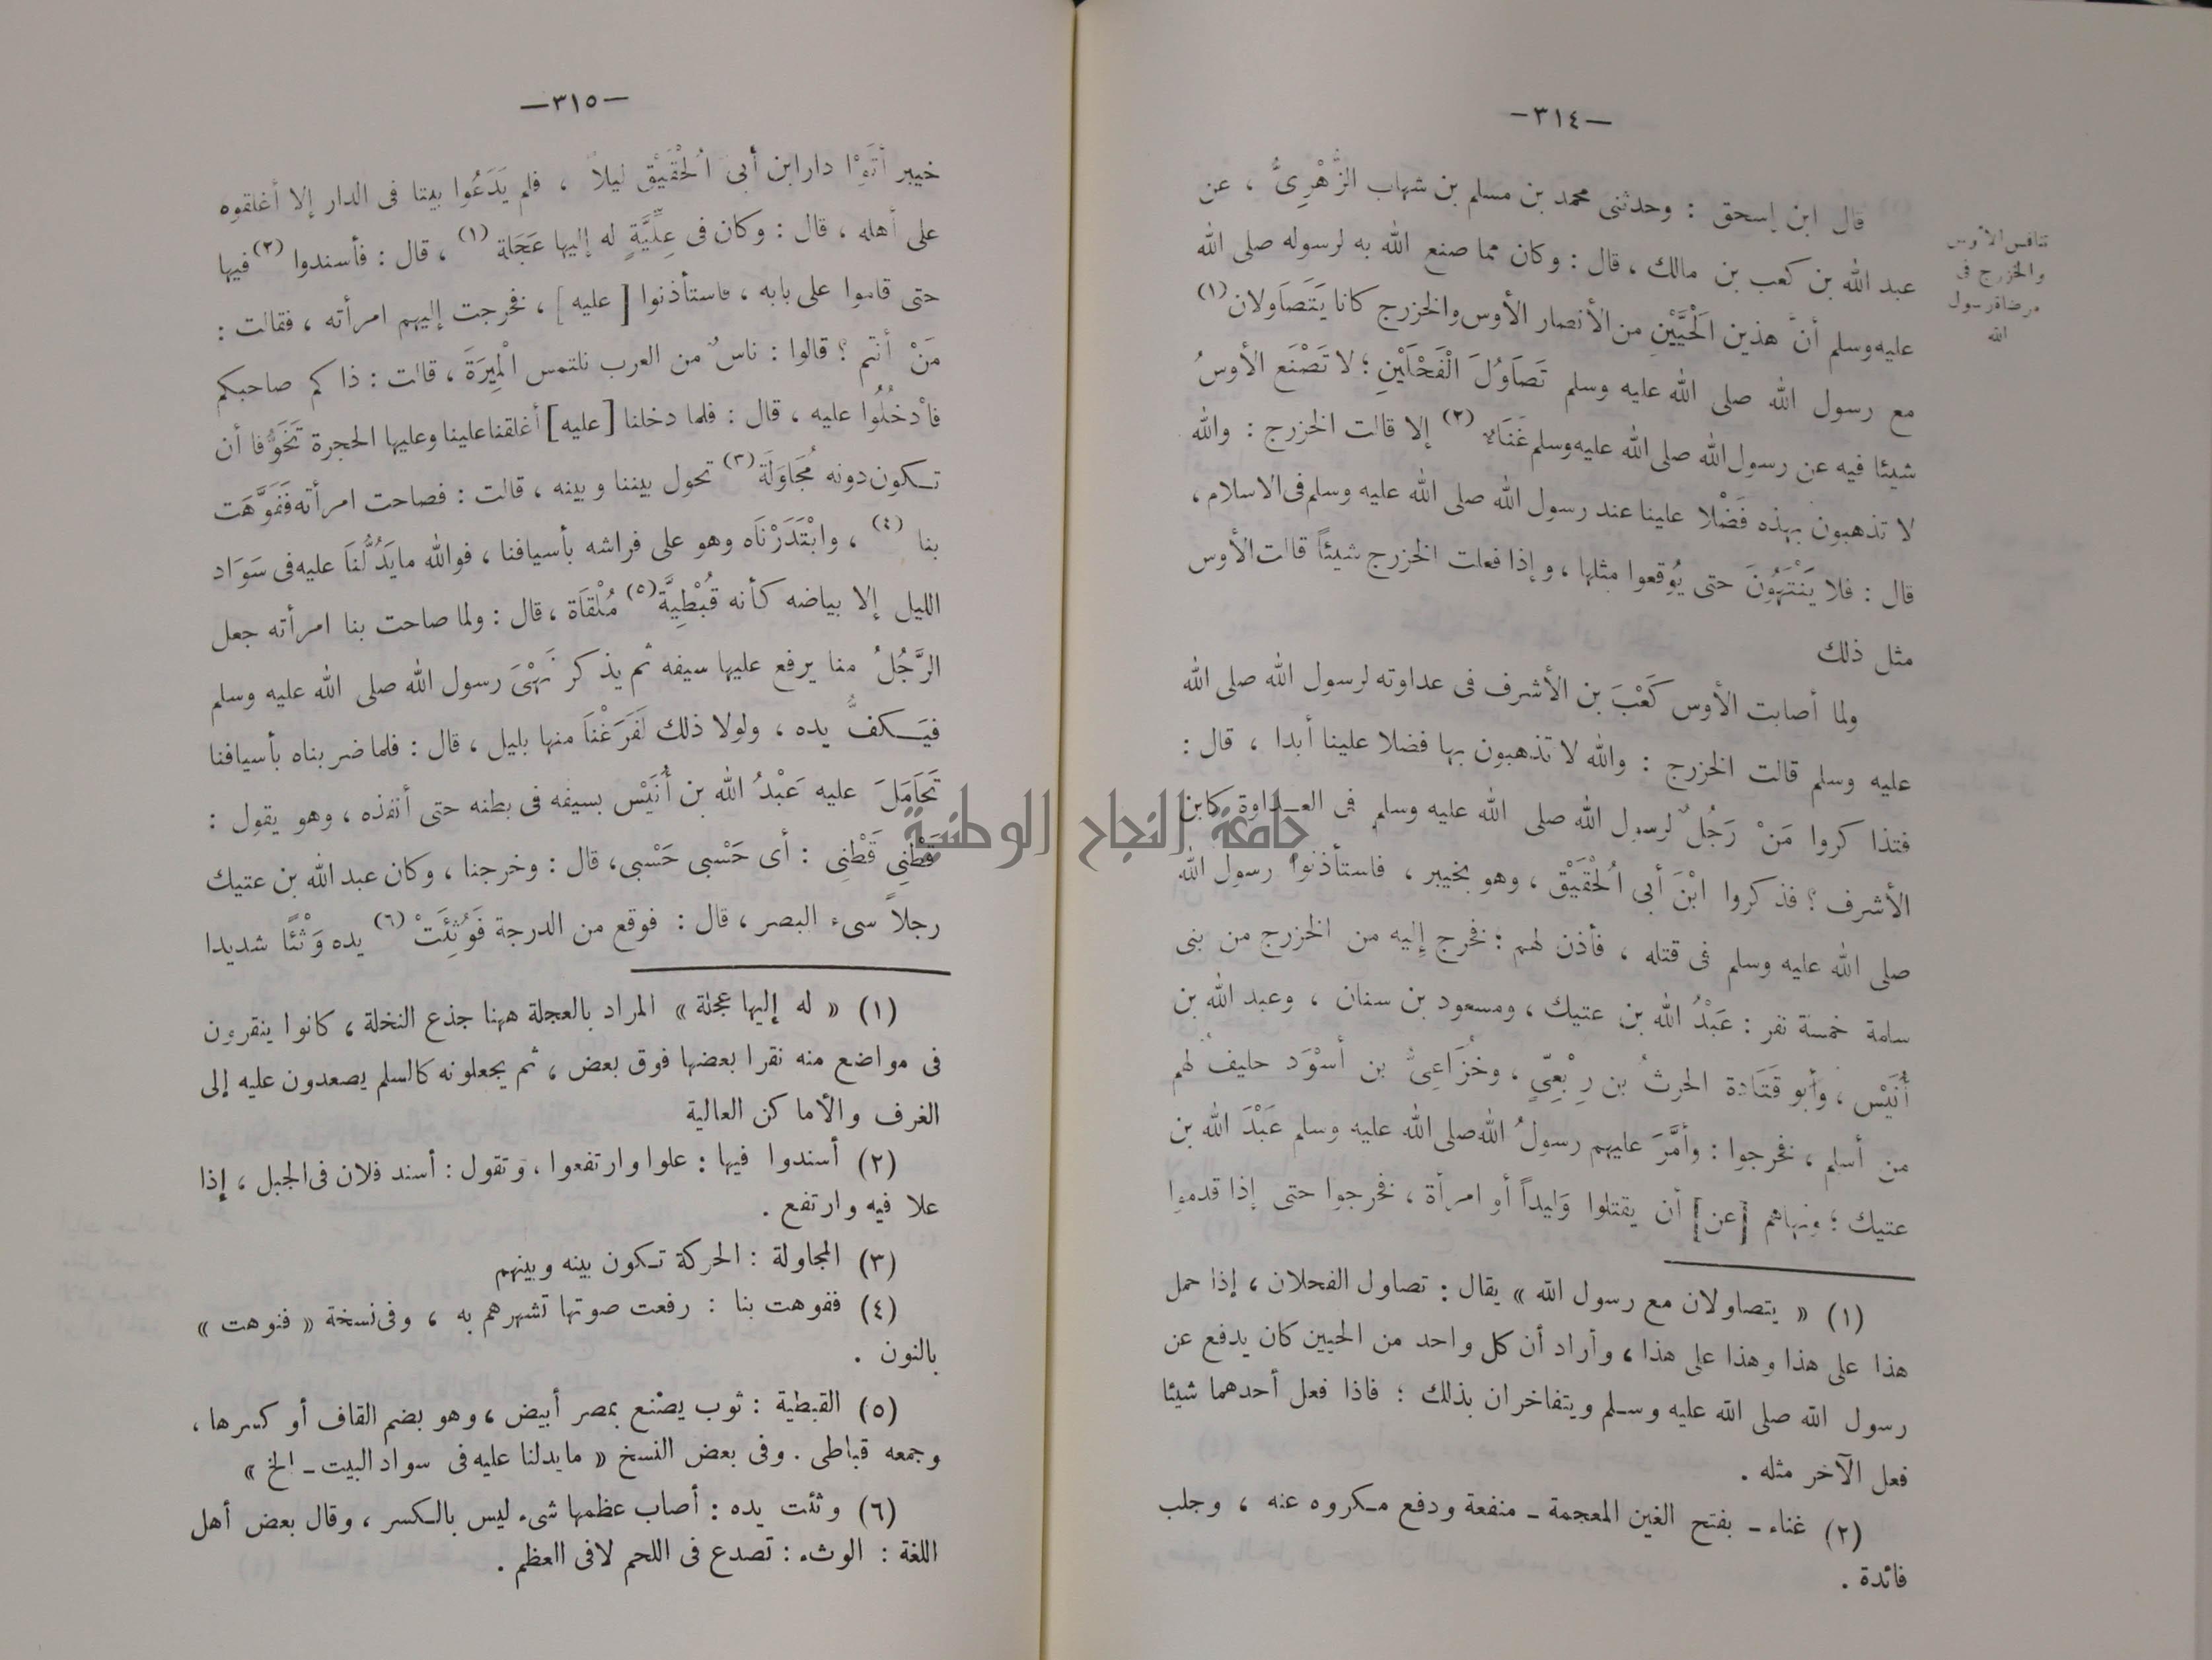 —٣١٤—
تنافس الأوس
والخزرج فى
مرضاة رسول
الله
قال ابن إسحق : وحدثنى محمد بن مسلم بن شهاب الزُّهْرِىُّ ، عن
عبد الله بن كعب بن مالك ، قال : وكان مما صنع الله به لرسوله صلى الله
عليه وسلم أنَّ هذين الْحَيَّيْنِ من الأنصار الأوس والخزرج كانا يَتَصَاولان (١)
مع رسول الله صلى الله عليه وسلم تَصَاوُلَ الْفَحْلَيْنِ ؛ لا تَصْنَع الأوسُ
شيئا فيه عن رسول الله صلى الله عليه وسلم غَنَاء (٢) إلا قالت الخزرج : والله
لا تذهبون بهذه فَضْلا علينا عند رسول الله صلى الله عليه وسلم فى الاسلام ،
قال : فلا يَنْتَهُونَ حتى يُوقعوا مثلها ، وإذا فعلت الخزرج شيئاً قالت الأوس
مثل ذلك
ولما أصابت الأوس كَعْبَ بن الأشرف فى عداوته لرسول الله صلى الله
عليه وسلم قالت الخزرج : والله لا تذهبون بها فضلا علينا أبدا ، قال :
فتذا كروا مَنْ رَجُلٌ لرسول الله صلى الله عليه وسلم فى العداوة كابن
الأشرف ؟ فذكروا ابْنَ أبى اُلْحُقَيْق ، وهو بخيبر ، فاستأذنوا رسول الله
صلى الله عليه وسلم فى قتله ، فأذن لهم ؛ فخرج إليه من الخزرج من بنى
سلمة خمسة نفر : عَبْدُ الله بن عتيك ، ومسعود بن سنان ، وعبد الله بن
أُنَيْس ، وأبو قَتَادة الحرثُ بن رِبْعِىّ ، وخُزَاعِىُّ بن أسْوَد حليف لهم
من أسلم ، فخرجوا : وأمَّرَ عليهم رسولُ الله صلى الله عليه وسلم عَبْدَ الله بن
عتيك ؛ ونهاهم [عن] أن يقتلوا وَليداً أو امرأة ، فخرجوا حتى إذا قدموا
(١) « يتصاولان مع رسول الله » يقال : تصاول الفحلان ، إذا حمل
هذا على هذا وهذا على هذا ، وأراد أن كل واحد من الحيين كان يدفع عن
رسول الله صلى الله عليه وسلم ويتفاخران بذلك ؛ فاذا فعل أحدهما شيئا
فعل الآخر مثله .
(٢) غناء ـ بفتح الغين المعجمة ـ منفعة ودفع مكروه عنه ، وجلب
فائدة .
—٣١٥—
خيبر أتَوْا دار ابن أبى اُلْحُقَيْق ليلاً ، فلم يَدَعُوا بيتا فى الدار إلا أغلقوه
على أهله ، قال : وكان فى عِلِّيَّةٍ له إليها عَجَلة (١) ، قال : فأسندوا (٢) فيها
حتى قاموا على بابه ، فاستأذنوا [عليه] ، فخرجت إليهم امرأته ، فقالت :
مَنْ أنتم ؟ قالوا : ناسٌ من العرب نلتمس الْمِيرَةَ ، قالت : ذاكم صاحبكم
فادْخُلُوا عليه ، قال : فلما دخلنا [عليه] أغلقنا علينا وعليها الحجرة تَخَوُّفا أن
تكون دونه مُجَاوَلَة (٣) تحول بيننا وبينه ، قالت : فصاحت امرأته فَفَوَّهَت
بنا (٤) ، وابْتَدَرْنَاه وهو على فراشه بأسيافنا ، فوالله ما يَدُلُّنَا عليه فى سَوَاد
الليل إلا بياضه كأنه قُبْطِيَّة (٥) مُلْقَاة ، قال : ولما صاحت بنا امرأته جعل
الرَّجُلُ منا يرفع عليها سيفه ثم يذكر نَهْىَ رسول الله صلى الله عليه وسلم
فيَكفُّ يده ، ولولا ذلك لَفَرَغْنَا منها بليل ، قال : فلما ضربناه بأسيافنا
تَحَامَلَ عليه عَبْدُ الله بن أُنَيْس بسيفه فى بطنه حتى أنفذه ، وهو يقول :
قَطْنِى قَطْنِى : أى حَسْبى حَسْبى ، قال : وخرجنا ، وكان عبد الله بن عتيك
رجلاً سىء البصر ، قال : فوقع من الدرجة فَوُثِئَتْ (٦) يده وَثْئًا شديدا
(١) « له إليها عجلة » المراد بالعجلة ههنا جذع النخلة ، كانوا ينقرون
فى مواضع منه نقرا بعضها فوق بعض ، ثم يجعلونه كالسلم يصعدون عليه إلى
الغرف والأماكن العالية
(٢) أسندوا فيها : علوا وارتفعوا ، وتقول : أسند فلان فى الجبل ، إذا
علا فيه وارتفع .
(٣) المجاولة : الحركة تكون بينه وبينهم
(٤) ففوهت بنا : رفعت صوتها تشهرهم به ، وفى نسخة « فنوهت »
بالنون .
(٥) القبطية : ثوب يصنع بمصر أبيض ، وهو بضم القاف أو كسرها ،
وجمعه قباطى . وفى بعض النسخ « ما يدلنا عليه فى سواد البيت ـ الخ »
(٦) وثئت يده : أصاب عظمها شىء ليس بالكسر ، وقال بعض أهل
اللغة : الوثء : تصدع فى اللحم لا فى العظم .
جامعة النجاح الوطنية